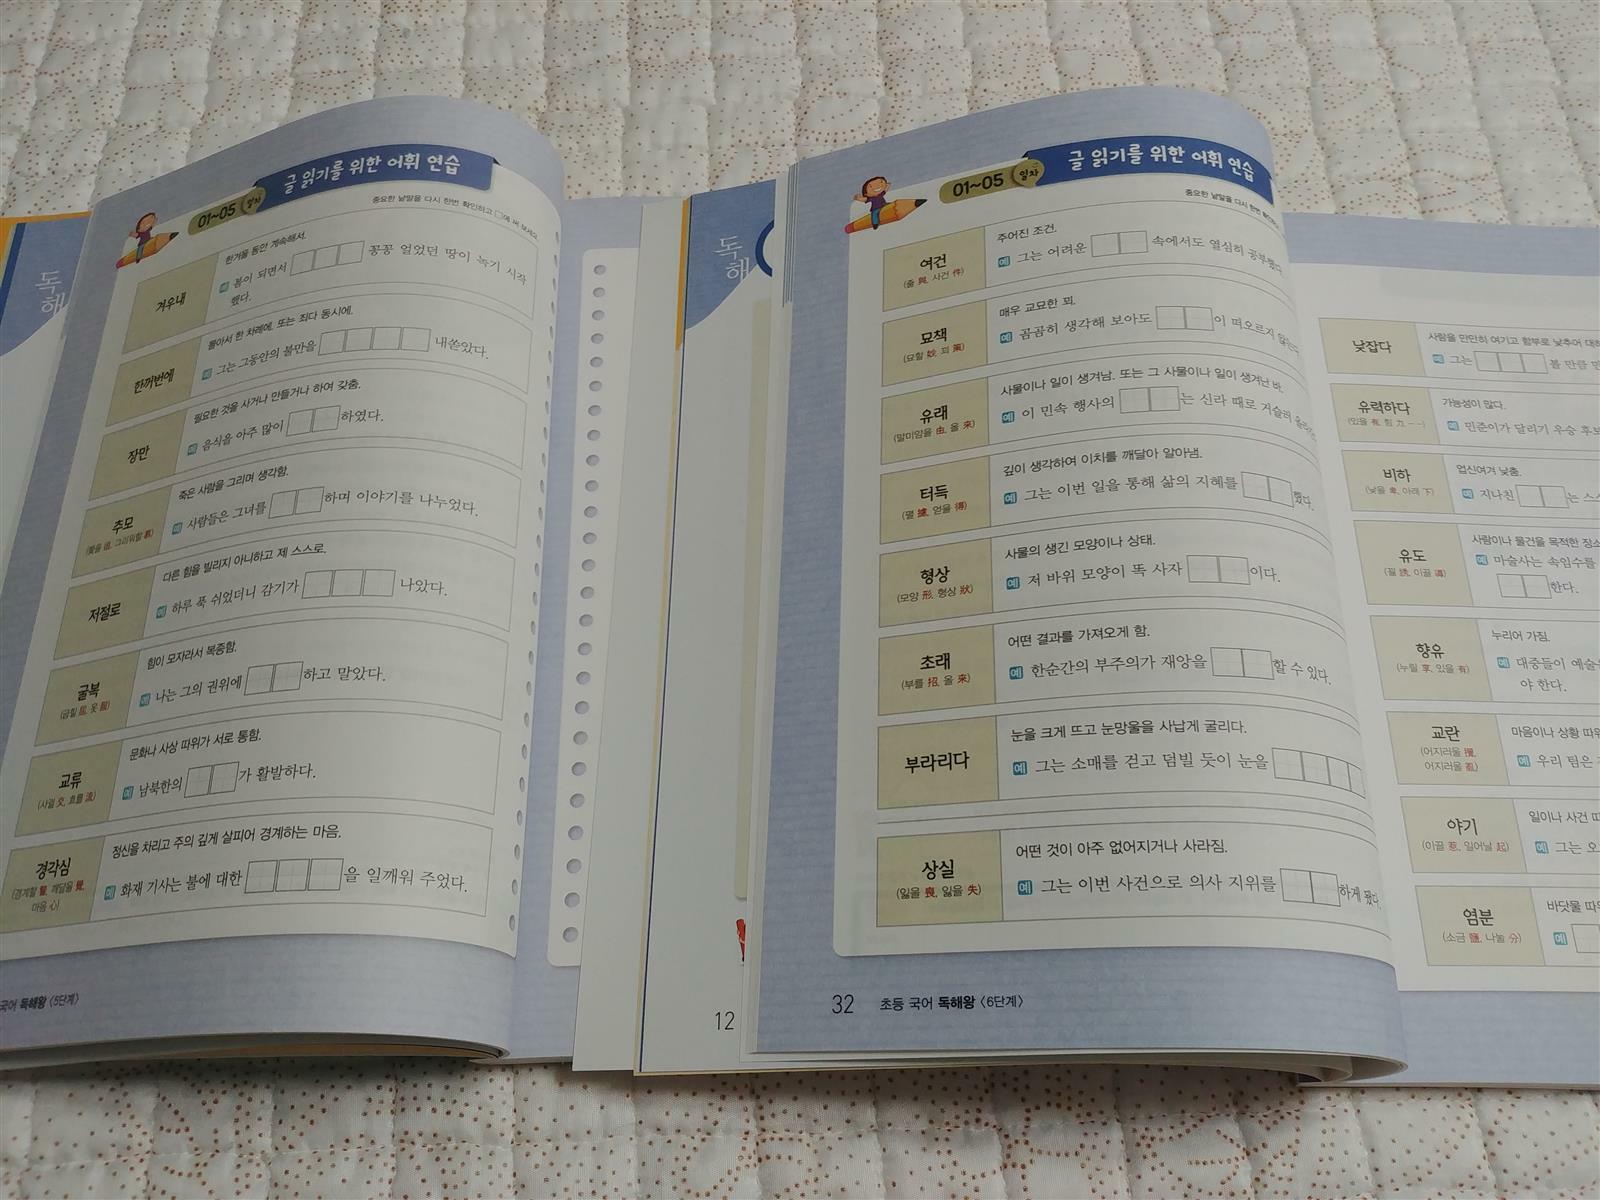 독해
01~05 일차
글 읽기를 위한 어휘 연습
중요한 낱말을 다시 한번 확인하고 □에 써 보세요.
겨우내
한겨울 동안 계속해서.
예 봄이 되면서 □□□ 꽁꽁 얼었던 땅이 녹기 시작
했다.
한꺼번에
몰아서 한 차례에. 또는 죄다 동시에.
예 그는 그동안의 불만을 □□□□ 내쏟았다.
장만
필요한 것을 사거나 만들거나 하여 갖춤.
예 음식을 아주 많이 □□하였다.
추모
(쫓을 追, 그리워할 慕)
죽은 사람을 그리며 생각함.
예 사람들은 그녀를 □□하며 이야기를 나누었다.
저절로
다른 힘을 빌리지 아니하고 제 스스로.
예 하루 푹 쉬었더니 감기가 □□□ 나았다.
굴복
(굽힐 屈, 옷 服)
힘이 모자라서 복종함.
예 나는 그의 권위에 □□하고 말았다.
교류
(사귈 交, 흐를 流)
문화나 사상 따위가 서로 통함.
예 남북한의 □□가 활발하다.
경각심
(경계할 警, 깨달을 覺,
마음 心)
정신을 차리고 주의 깊게 살피어 경계하는 마음.
예 화재 기사는 불에 대한 □□□을 일깨워 주었다.
국어 독해왕 〈5단계〉
독해
12
01~05 일차
글 읽기를 위한 어휘 연습
중요한 낱말을 다시 한번
여건
(줄 與, 사건 件)
주어진 조건.
예 그는 어려운 □□ 속에서도 열심히 공부했다.
묘책
(묘할 妙, 꾀 策)
매우 교묘한 꾀.
예 곰곰히 생각해 보아도 □□이 떠오르지 않는다
유래
(말미암을 由, 올 來)
사물이나 일이 생겨남. 또는 그 사물이나 일이 생겨난 바.
예 이 민속 행사의 □□는 신라 때로 거슬러
터득
(펼 攄, 얻을 得)
깊이 생각하여 이치를 깨달아 알아냄.
예 그는 이번 일을 통해 삶의 지혜를 □□했다.
형상
(모양 形, 형상 狀)
사물의 생긴 모양이나 상태.
예 저 바위 모양이 똑 사자 □□이다.
초래
(부를 招, 올 來)
어떤 결과를 가져오게 함.
예 한순간의 부주의가 재앙을 □□할 수 있다.
부라리다
눈을 크게 뜨고 눈망울을 사납게 굴리다.
예 그는 소매를 걷고 덤빌 듯이 눈을 □□□□
상실
(잃을 喪, 잃을 失)
어떤 것이 아주 없어지거나 사라짐.
예 그는 이번 사건으로 의사 지위를 □□하게 됐다.
32 초등 국어 독해왕 〈6단계〉
낮잡다
사람을 만만히 여기고 함부로 낮추어 대하
예 그는 □□□ 볼 만큼 만
유력하다
(있을 有, 힘 力 --)
가능성이 많다.
예 민준이가 달리기 우승 후보
비하
(낮을 卑, 아래 下)
업신여겨 낮춤.
예 지나친 □□는 스스
유도
(꾈 誘, 이끌 導)
사람이나 물건을 목적한 장소
예 마술사는 속임수를
□□한다.
향유
(누릴 享, 있을 有)
누리어 가짐.
예 대중들이 예술
야 한다.
교란
(어지러울 攪,
어지러울 亂)
마음이나 상황 따위
예 우리 팀은
야기
(이끌 惹, 일어날 起)
일이나 사건 따
예 그는 오
염분
(소금 鹽, 나눌 分)
바닷물 따위
예 □